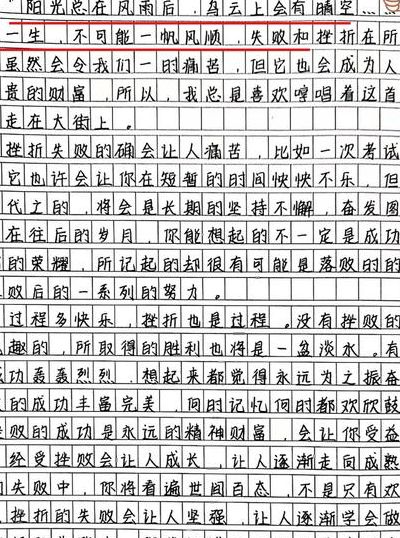 阳光总在风雨后，乌云上会有晴空……
一生，不可能一帆风顺，失败和挫折在所
虽然会令我们一时痛苦，但它也会成为人
贵的财富，所以，我总是喜欢哼唱着这首
走在大街上。
挫折失败的确会让人痛苦，比如一次考试
它也许会让你在短暂的时间怏怏不乐，但
代之的，将会是长期的坚持不懈，奋发图
在往后的岁月，你能想起的不一定是成功
的荣耀，所记起的却很有可能是落败的的
败后的一系列的努力。
过程多快乐，挫折也是过程。没有挫败的
趣的，所取得的胜利也将是一盆淡水。有
成功轰轰烈烈，想起来都觉得永远为之振奋
的成功丰富完美，何时记忆何时都欢欣鼓
败的成功是永远的精神财富，会让你受益
经受挫败会让人成长，让人逐渐走向成熟
失败中，你将看遍世间百态，不是只有欢
挫折的失败会让人坚强，让人逐渐学会做